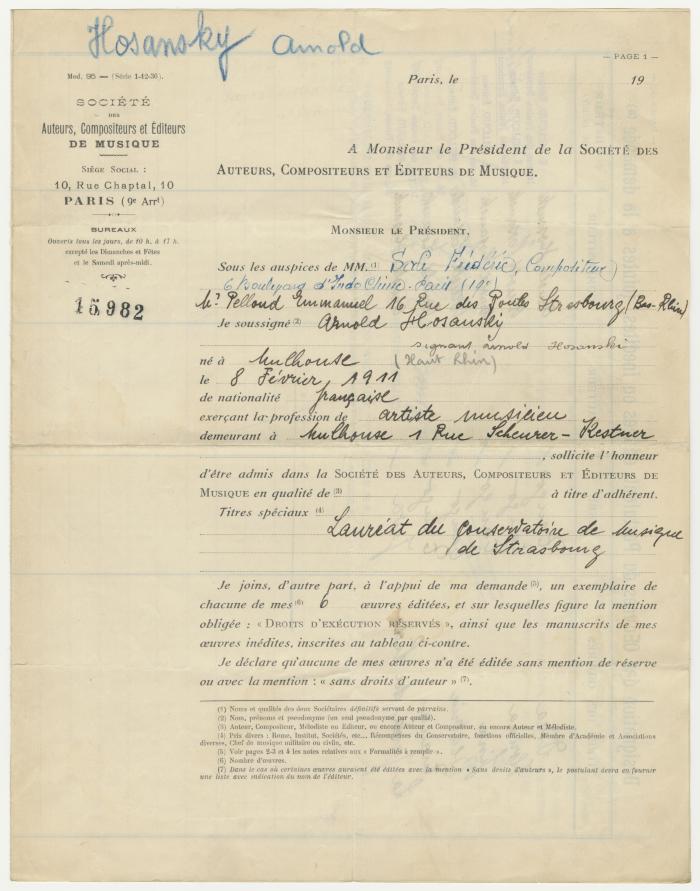 Hosansky Arnold
— PAGE 1 —
Mod. 95 — (Série 1-12-36).
Paris, le 19
SOCIÉTÉ
DES
Auteurs, Compositeurs et Éditeurs
DE MUSIQUE
SIÈGE SOCIAL :
10, Rue Chaptal, 10
PARIS (9e Arrt)
BUREAUX
Ouverts tous les jours, de 10 h. à 17 h.
excepté les Dimanches et Fêtes
et le Samedi après-midi.
15982
A Monsieur le Président de la SOCIÉTÉ DES
AUTEURS, COMPOSITEURS ET ÉDITEURS DE MUSIQUE.
MONSIEUR LE PRÉSIDENT,
Sous les auspices de MM. (1) Frédéric, Compositeur
6 Boulevard d'Indo Chine. Paris (19e)
Mr Pelloud Emmanuel 16 Rue des Poules Strasbourg (Bas-Rhin)
Je soussigné (2) Arnold Hosansky
signant Arnold Hosanski
né à Mulhouse (Haut Rhin)
le 8 Février 1911
de nationalité française
exerçant la profession de artiste musicien
demeurant à Mulhouse 1 Rue Scheurer-Kestner
, sollicite l'honneur
d'être admis dans la SOCIÉTÉ DES AUTEURS, COMPOSITEURS ET ÉDITEURS DE
MUSIQUE en qualité de (3) à titre d'adhérent.
Titres spéciaux (4)
Lauréat du Conservatoire de Musique
de Strasbourg
Je joins, d'autre part, à l'appui de ma demande (5), un exemplaire de
chacune de mes (6) 6 œuvres éditées, et sur lesquelles figure la mention
obligée : « DROITS D'EXÉCUTION RÉSERVÉS », ainsi que les manuscrits de mes
œuvres inédites, inscrites au tableau ci-contre.
Je déclare qu'aucune de mes œuvres n'a été éditée sans mention de réserve
ou avec la mention : « sans droits d'auteur » (7).
(1) Noms et qualités des deux Sociétaires définitifs servant de parrains.
(2) Nom, prénoms et pseudonyme (un seul pseudonyme par qualité).
(3) Auteur, Compositeur, Mélodiste ou Editeur, ou encore Auteur et Compositeur, ou encore Auteur et Mélodiste.
(4) Prix divers : Rome, Institut, Sociétés, etc... Récompenses du Conservatoire, fonctions officielles, Membre d'Académie et Associations
diverses, Chef de musique militaire ou civile, etc.
(5) Voir pages 2-3 et 4 les notes relatives aux « Formalités à remplir ».
(6) Nombre d'œuvres.
(7) Dans le cas où certaines œuvres auraient été éditées avec la mention « Sans droits d'auteurs », le postulant devra en fournir
une liste avec indication du nom de l'éditeur.